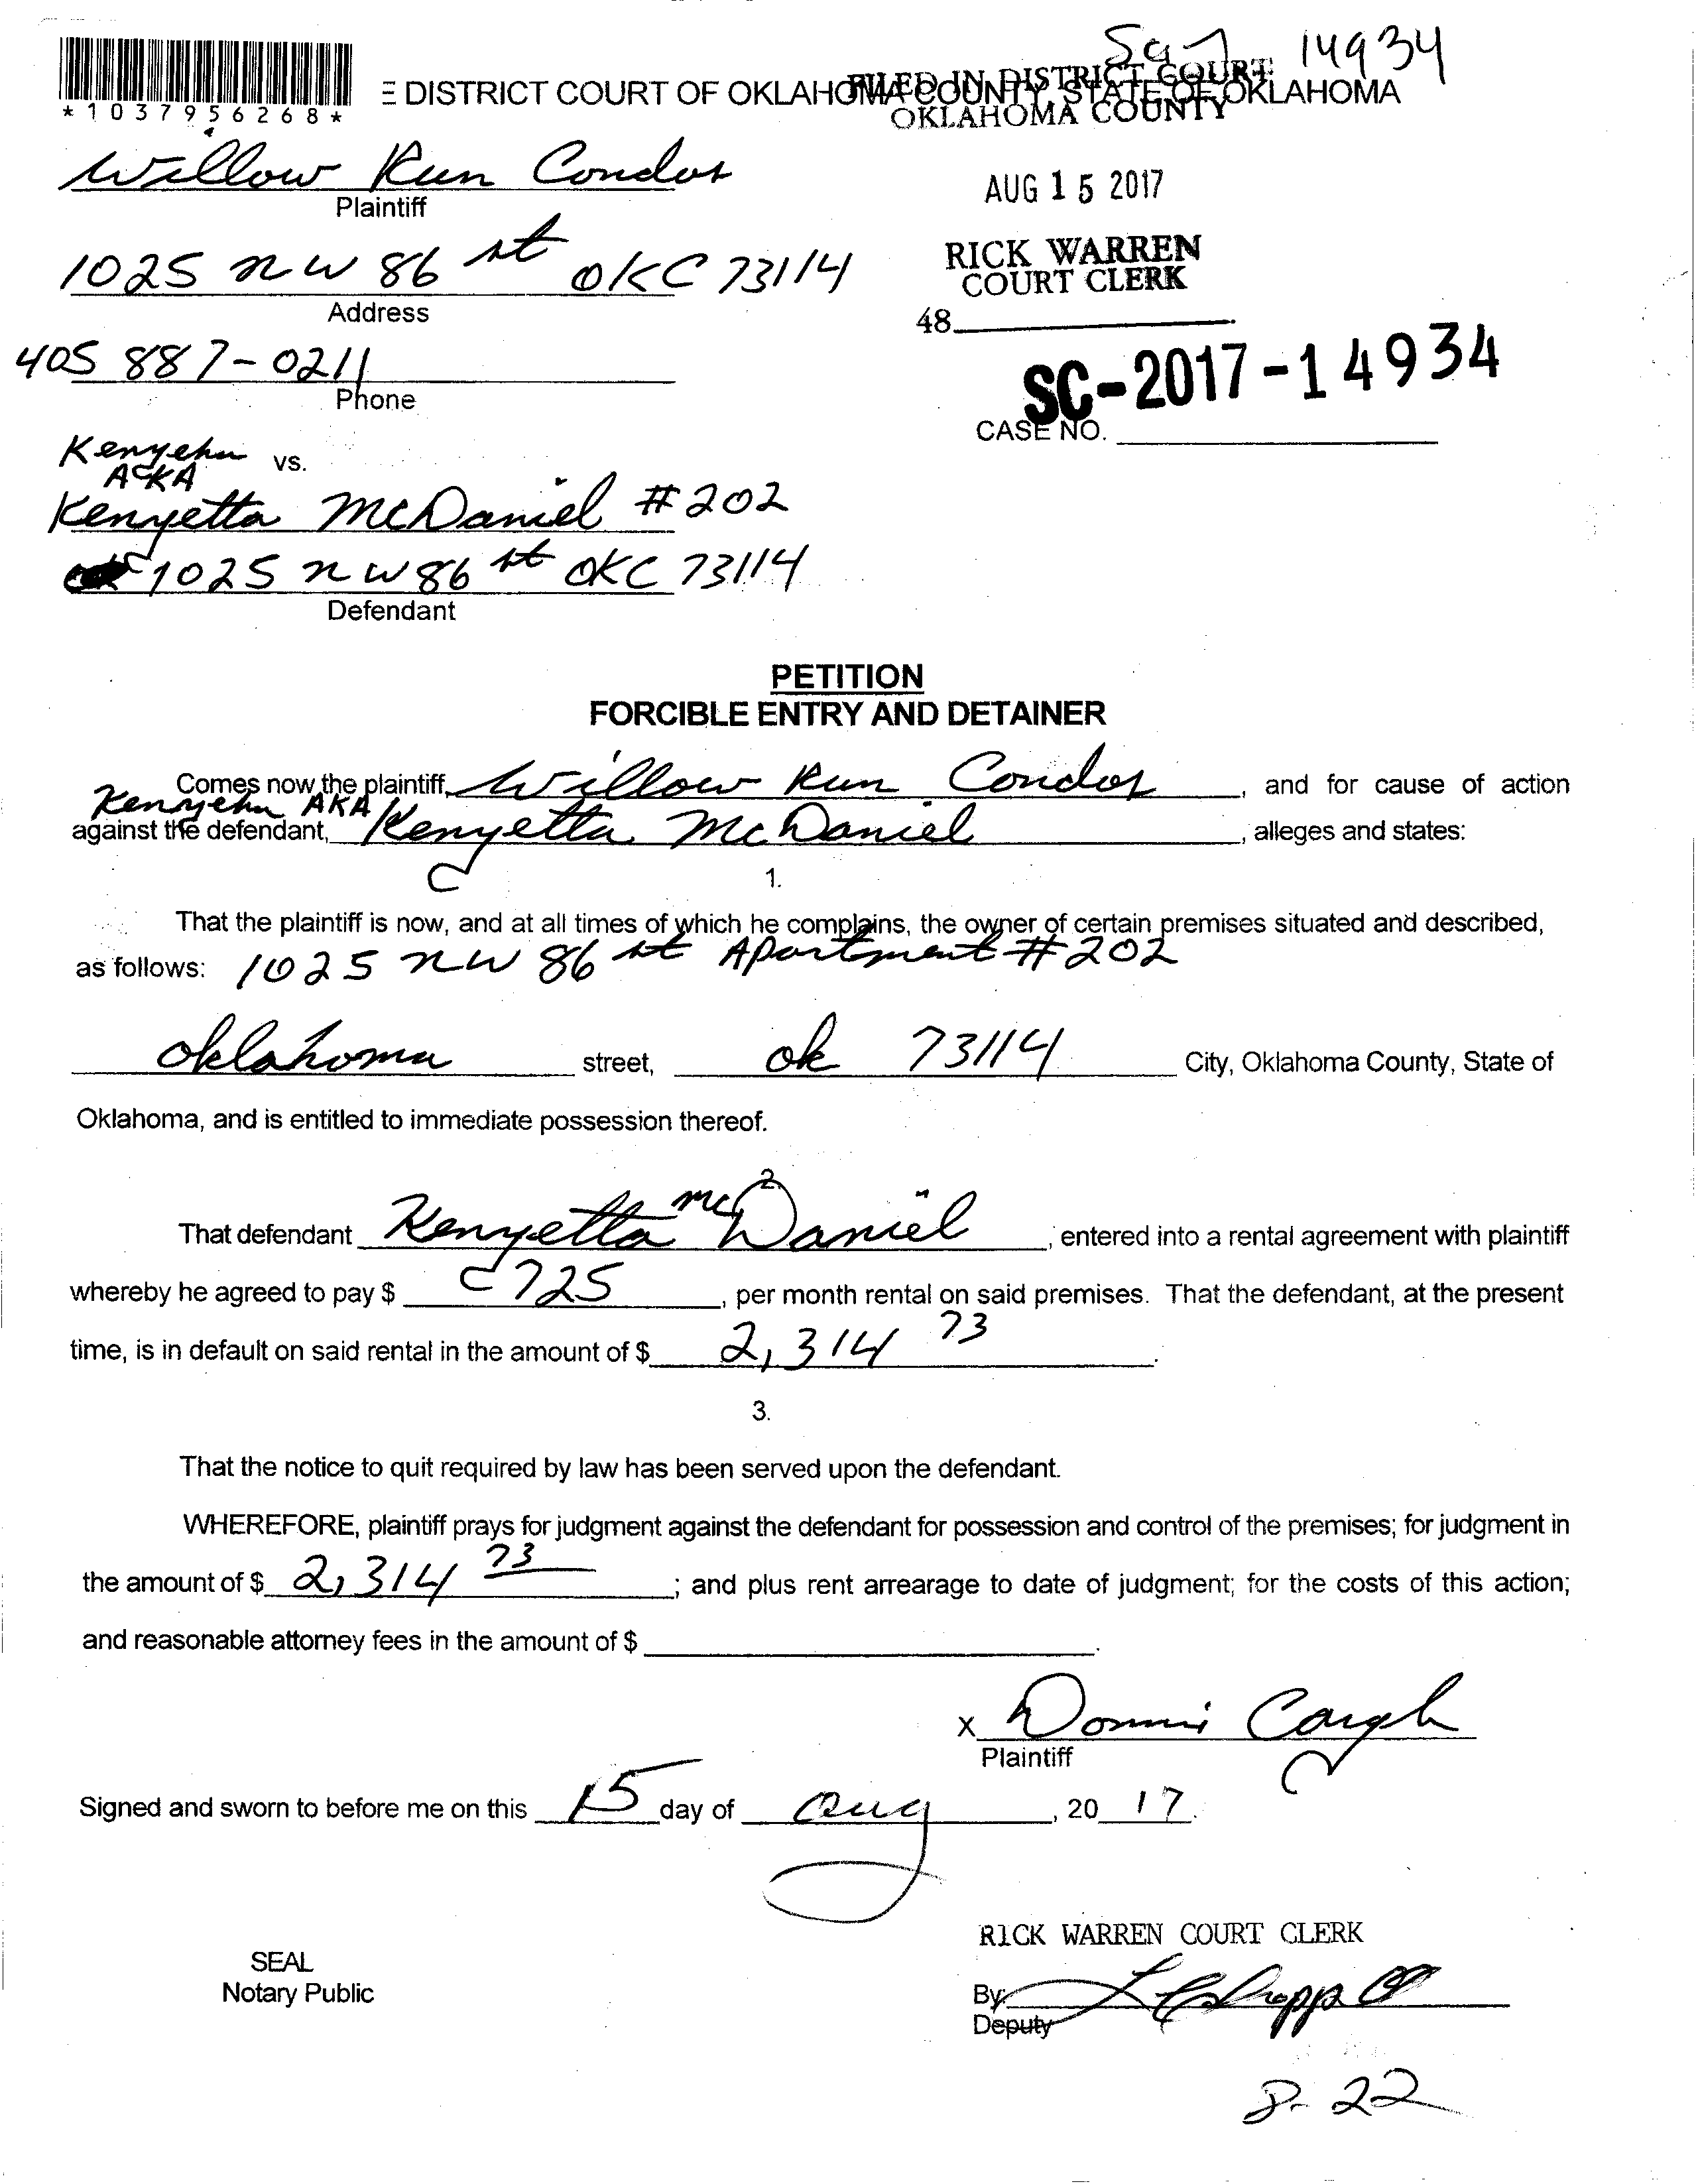 Sq-7 14934
*1037956268*
E DISTRICT COURT OF OKLAHOMA COUNTY, STATE OF OKLAHOMA
FILED IN DISTRICT COURT
OKLAHOMA COUNTY
Willow Run Condos
Plaintiff
AUG 15 2017
1025 NW 86 st OKC 73114
Address
RICK WARREN
COURT CLERK
48
405 887-0211
Phone
SC-2017-14934
CASE NO.
Kenyehu vs.
AKA
Kenyetta McDaniel #202
1025 NW 86 st OKC 73114
Defendant
PETITION
FORCIBLE ENTRY AND DETAINER
Comes now the plaintiff, Willow Run Condos, and for cause of action
Kenyehu AKA
against the defendant, Kenyetta McDaniel, alleges and states:
1.
That the plaintiff is now, and at all times of which he complains, the owner of certain premises situated and described,
as follows: 1025 NW 86 st Apartment #202
Oklahoma street, ok 73114 City, Oklahoma County, State of
Oklahoma, and is entitled to immediate possession thereof.
2.
That defendant Kenyetta McDaniel, entered into a rental agreement with plaintiff
whereby he agreed to pay $ 725, per month rental on said premises. That the defendant, at the present
time, is in default on said rental in the amount of $ 2,314 73.
3.
That the notice to quit required by law has been served upon the defendant.
WHEREFORE, plaintiff prays for judgment against the defendant for possession and control of the premises; for judgment in
the amount of $ 2,314 73; and plus rent arrearage to date of judgment; for the costs of this action;
and reasonable attorney fees in the amount of $ .
x Donni
Plaintiff
Signed and sworn to before me on this 15 day of Aug, 20 17.
RICK WARREN COURT CLERK
SEAL
Notary Public
By:
Deputy
8-22